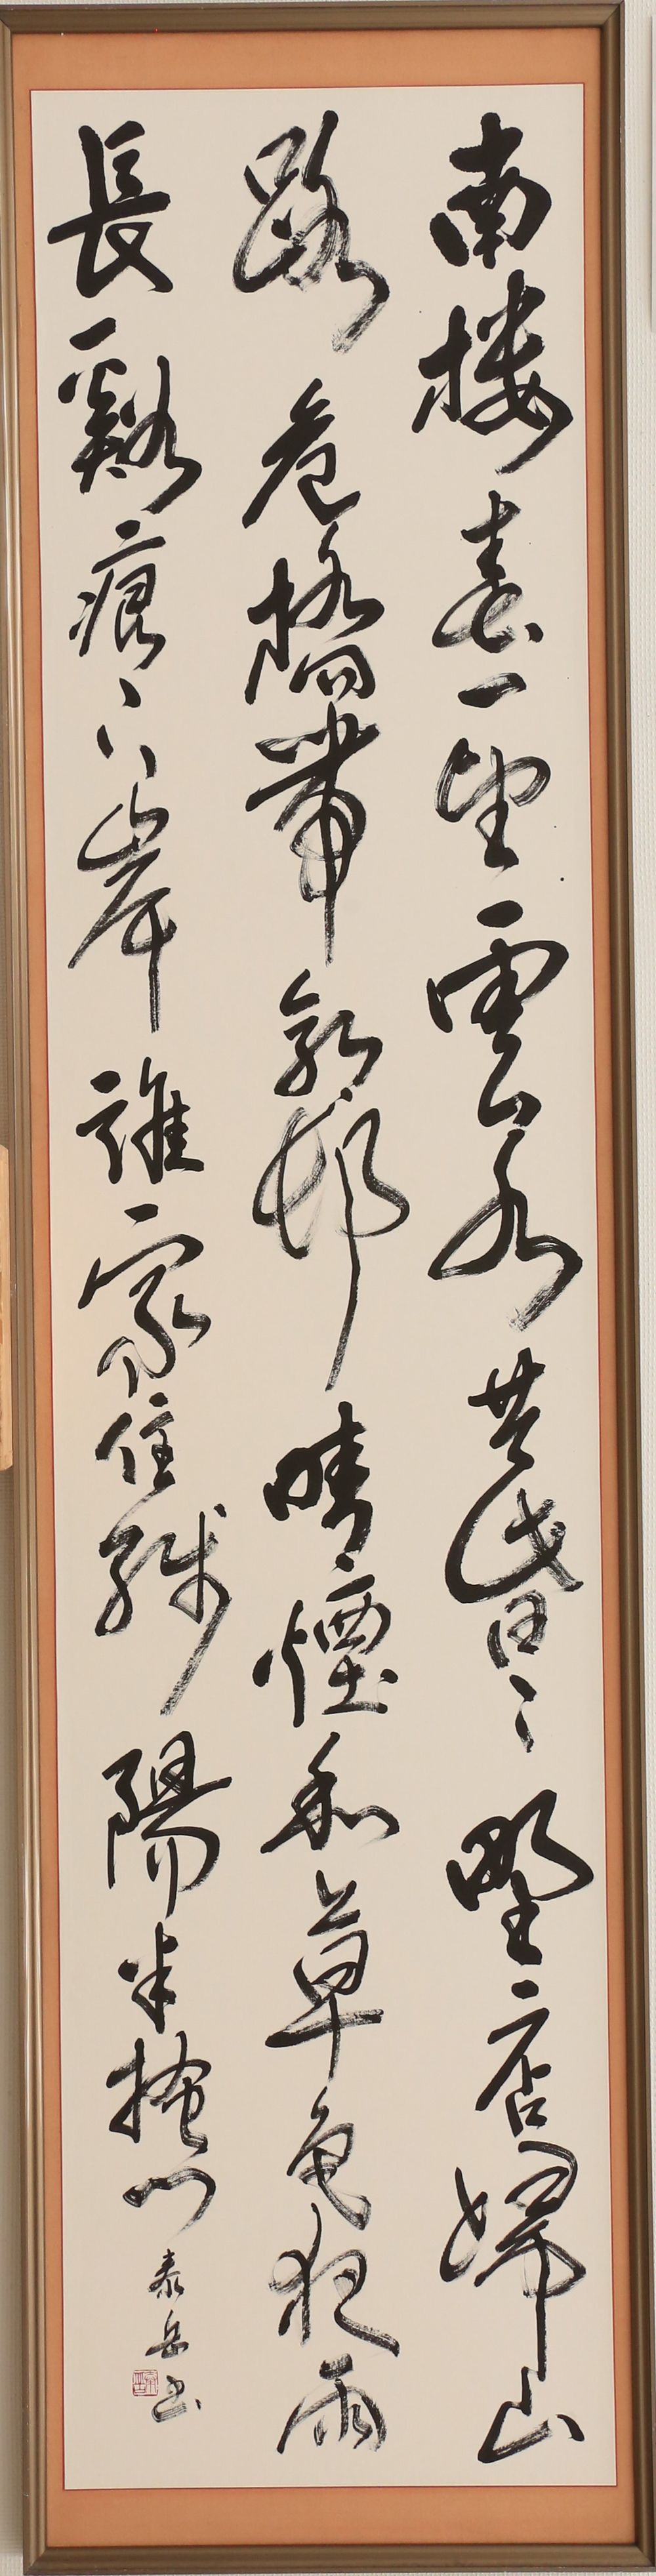 南樓春一望雲水共昏〻野店歸山
路危橋帶郭邨晴煙和草色夜雨
長谿痕下岸誰家住殘陽半掩門
泰岳書